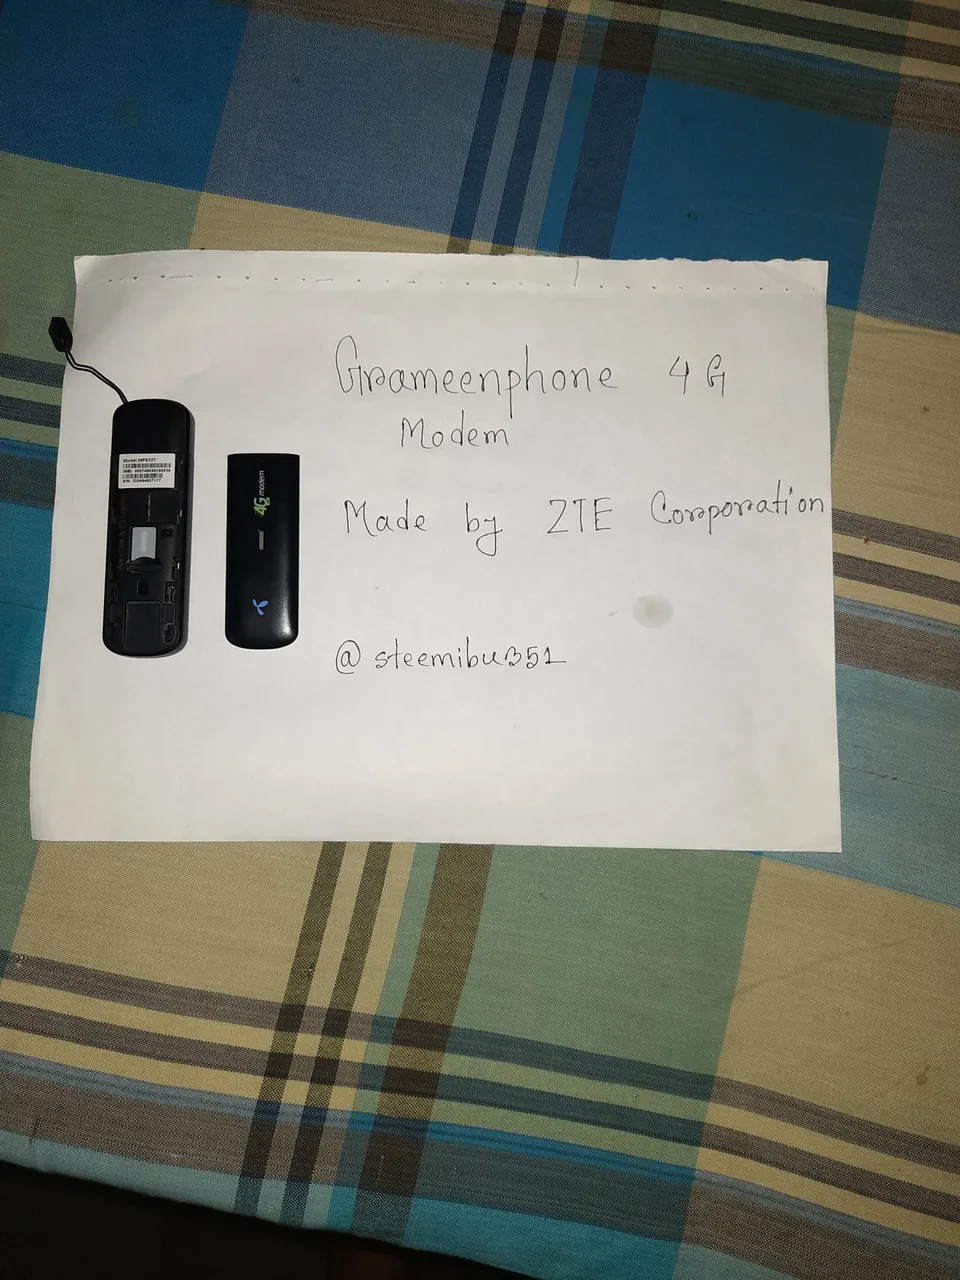 Grameenphone 4G
Modem
Made by ZTE Corporation
@steemibu351
4G modem
Model:MF833T